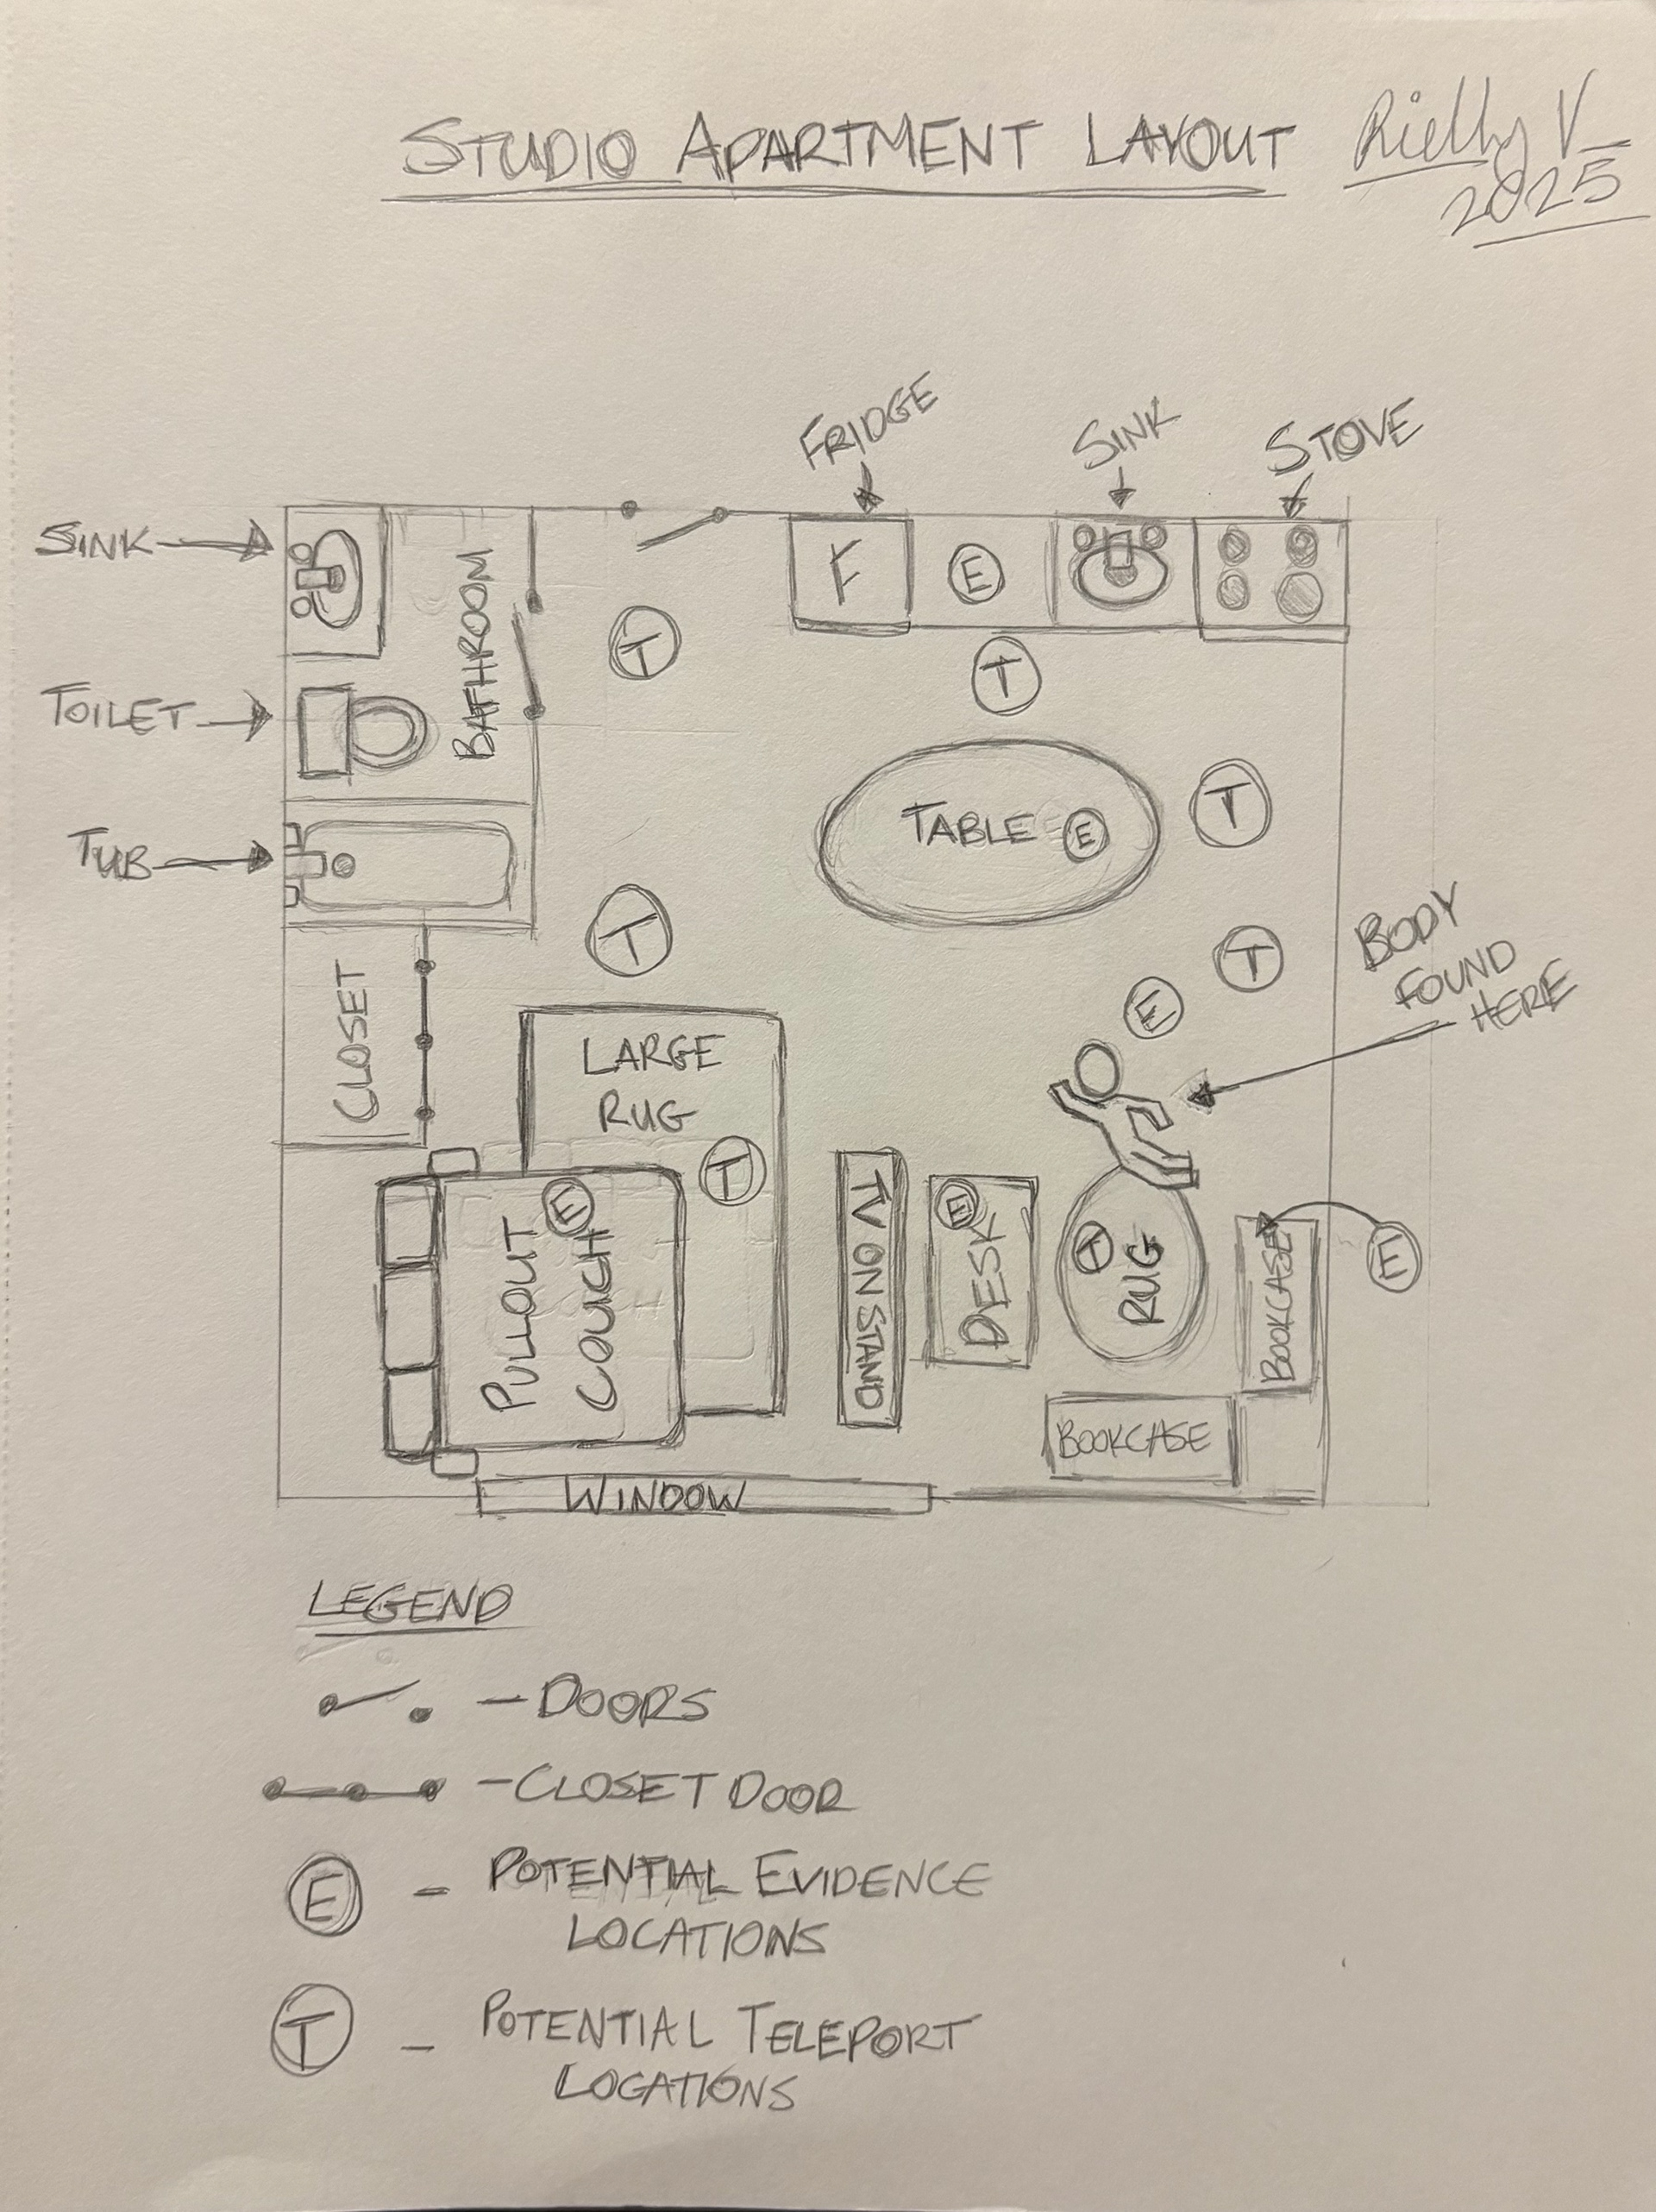 STUDIO APARTMENT LAYOUT
Rielly V
2025
FRIDGE
SINK
STOVE
SINK
F
E
BATHROOM
T
T
TOILET
TABLE E
T
TUB
T
BODY
FOUND
HERE
T
E
CLOSET
LARGE
RUG
T
PULLOUT
COUCH
E
TV ON STAND
E
DESK
T
RUG
BOOKCASE
E
BOOKCASE
WINDOW
LEGEND
- DOORS
- CLOSET DOOR
E - POTENTIAL EVIDENCE
LOCATIONS
T - POTENTIAL TELEPORT
LOCATIONS